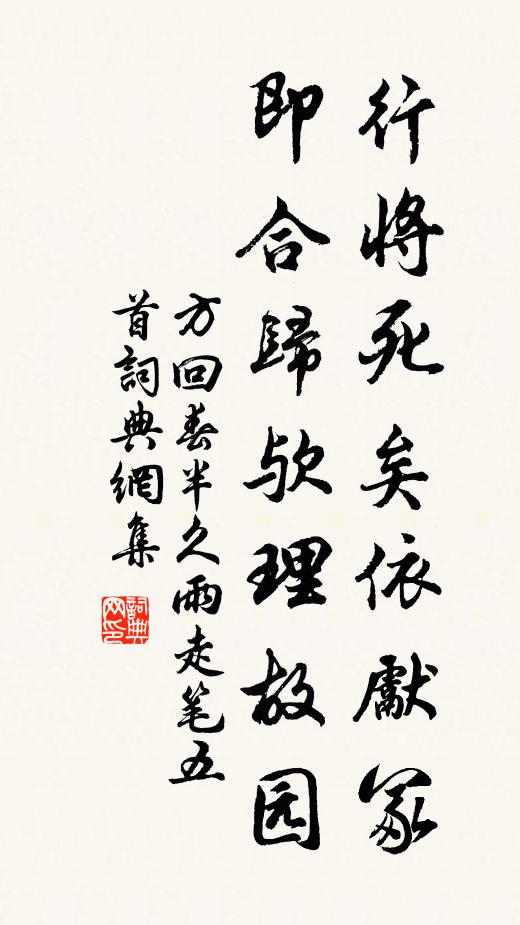 行將死矣依獻冢
即合歸欤理故园
方回春半久雨走笔五
首詞典網集
詞典网印